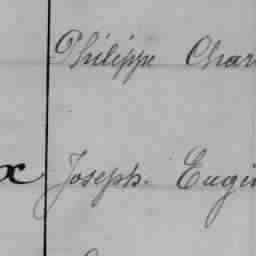 Philippe Char
x Joseph. Eugè